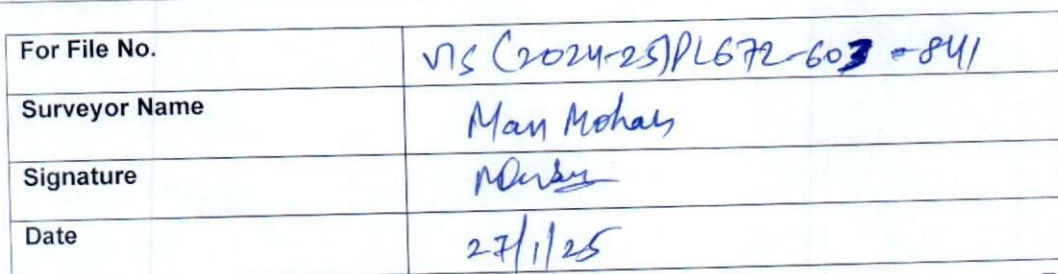 For File No. VIS (2024-25)PL672-603-841
Surveyor Name Man Mohan
Signature
Date 27/1/25